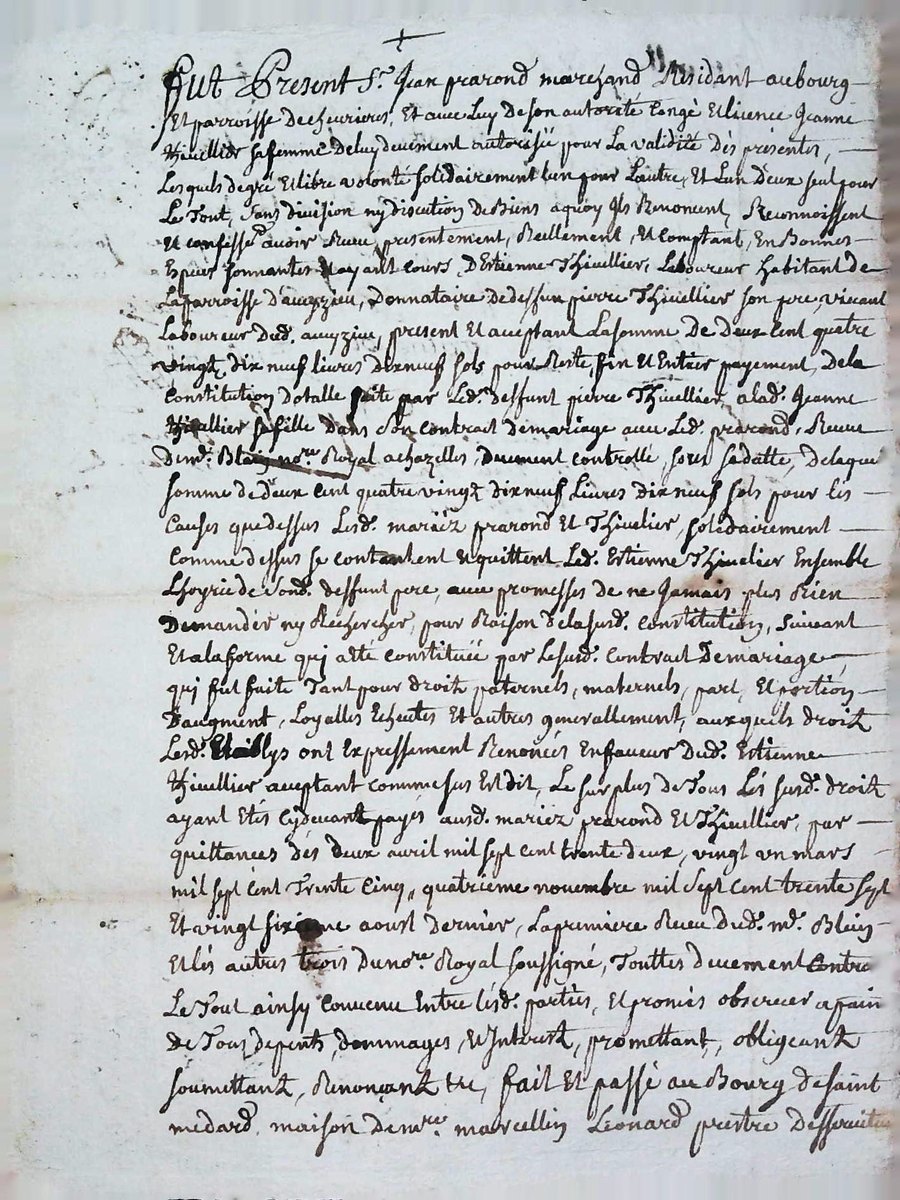 Fut Present Sr. Jean prarond marchand Residant au bourg
Et parroisse De chevrieres, Et avec Luy De son autorité Congé Et licence Jeanne
thivellier sa femme De luy deuement autorisée pour La validité Dés présentes,
Lesquels de gré Et libre volonté solidairement l'un pour L'autre, Et L'un D'eux seul pour
Le Tout, sans division ny discution De Biens a quoy Ils Renoncent, Reconnoissent
Et confesse avoir Receu presentement, Reellement, Et Comptant, En Bonnes
Especes sonnantes Et ayant Cours, D'Estienne Thivellier, Laboureur habitant de
La parroisse d'aveyzieu, Donnataire De deffun pierre Thivellier son pere, vivant
Laboureur Dud. aveyzieu, present Et aceptant La somme De Deux Cent quatre
vingt dix neuf livres dix neuf sols pour Reste, fin Et Entier payement, De la
Constitution Dotalle faite par Led. deffunt pierre Thivellier, a lad. Jeanne
thivellier sa fille Dans son contract De mariage avec Led. prarond, Receue
De me. Blein nore. Royal a chazelles, Duement controllé, sous sa datte, De laque
somme de Deux Cent quatre vingt dix neuf Livres dix neuf sols pour les
Causes que dessus Lesd. mariéz prarond Et Thivelier, solidairement
comme dessus se contentent Et quittent Led. Estienne Thivelier Ensemble
L'hoyrie de sond. deffunt pere, avec promesses de ne Jamais plus Rien
Demander ny Rechercher, pour Raison De la susd. Constitution, suivant
Et a la forme qui a été constituée par Le susd. Contract De mariage
qui fut faite Tant pour droit paternels, maternels, part, Et portion
D'augment, Loyalles Echeutes Et autres generallement, auxquels droit
Lesd. Establys ont Expressement Renoncés En faveur Dud. Estienne
thivellier aceptant comme sus Est dit, Le surplus de Tous Lés susd. droit
ayant Etés Cy devant payés ausd. mariéz prarond Et Thivellier, par
quittances dés deux avril mil sept cent trente deux, vingt un mars
mil sept Cent Trente Cinq, quatrieme novembre mil Sept Cent trente sept
Et vingt sixieme aoust dernier, La premiere Receu Dud. me. Blein
Et lés autres trois Du nore. Royal soussigné, Touttes Deuement Contro
Le Tout ainsy Convenu Entre lesd. parties, Et promis observer a pain
de Tous depents, dommages, Et Interet, promettant, obligeant
soumettant, Renonçant etc, fait Et passé au Bourg de saint
medard, maison De mre. marcellin Léonard prestre